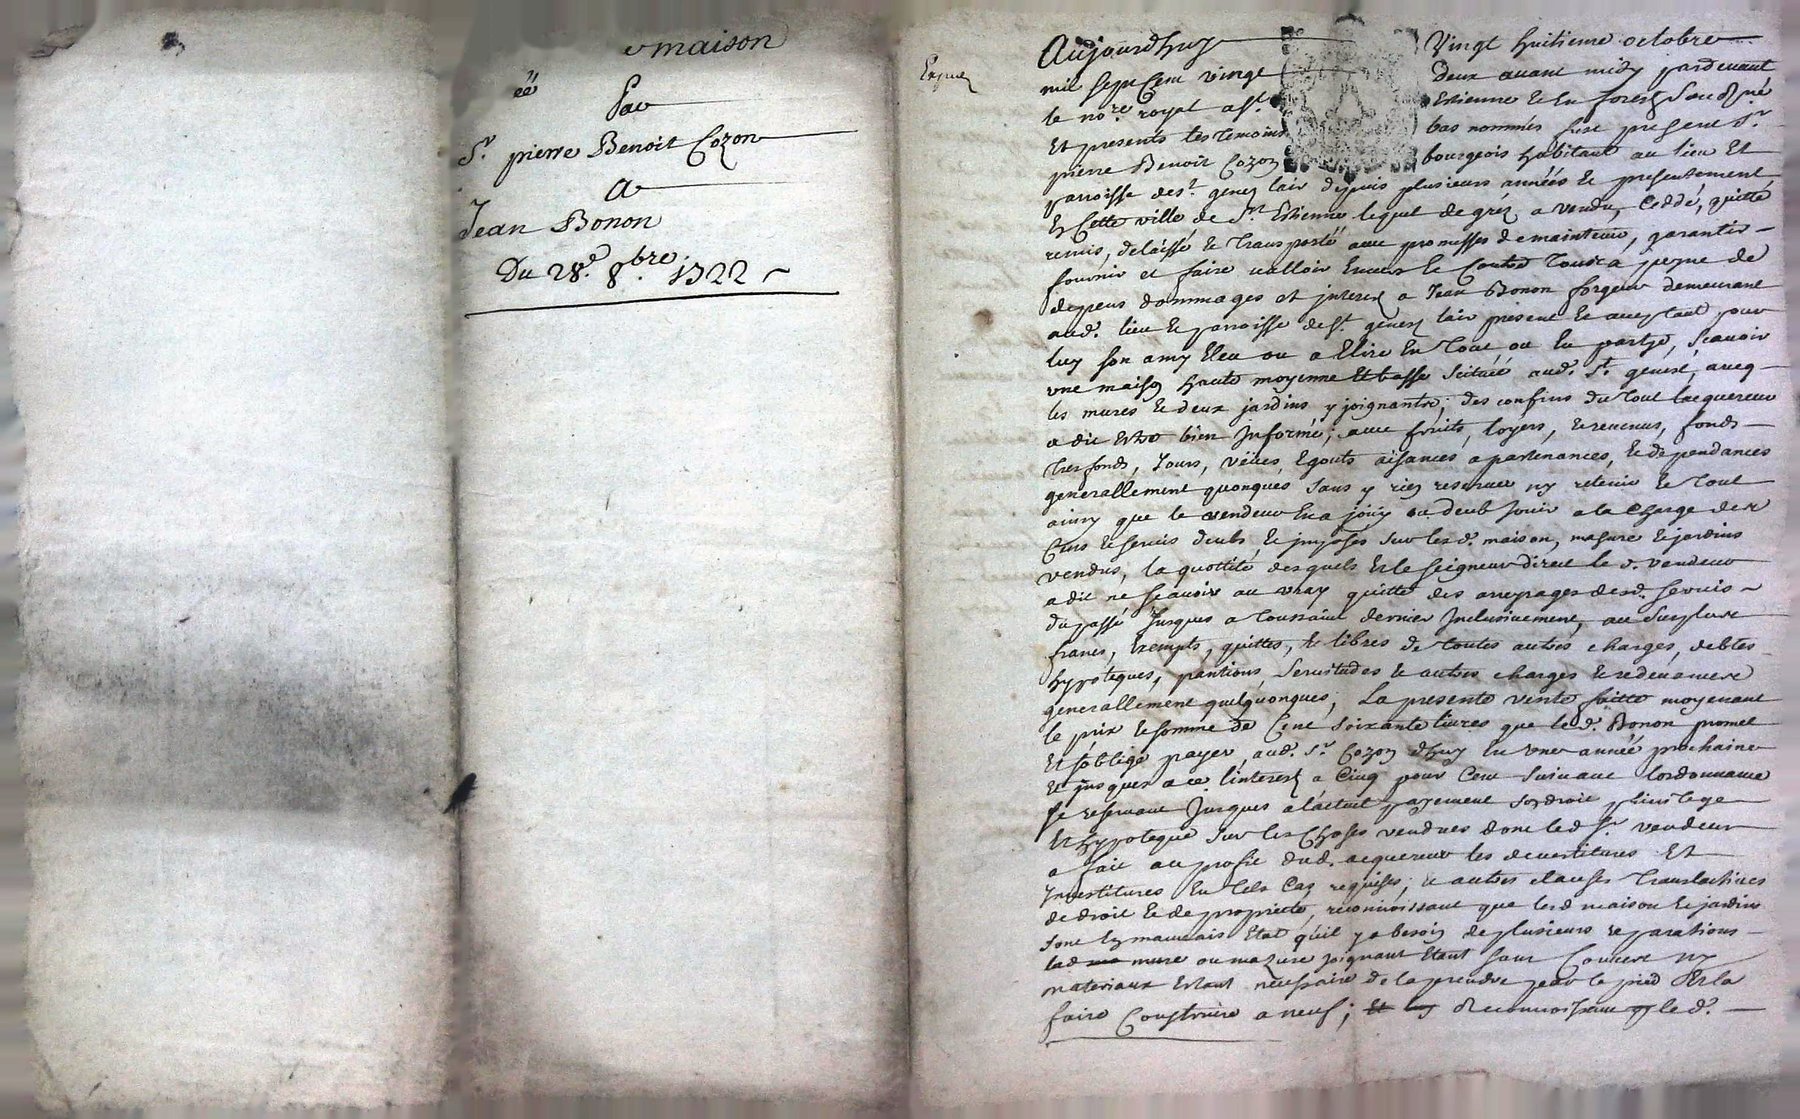 maison
Par
Sr. pierre Benoit Cozon
A
Jean Bonon
Du 28e. 8bre. 1722
Aujourdhuy Vingt huitieme octobre
mil sept Cent vingt deux avant midy pardevant
le nore. royal a St. Estienne & en forest Sousigné
Et presents les temoins bas nommés fust present Sr.
pierre Benoit Cozon bourgeois habitant au lieu Et
parroisse de St. genez lair depuis plusieurs années & presentement
En Cette ville de St. Estienne lequel de gréz a vendu, Ceddé, quitté
remis, delaissé & transporté avec promesses de maintenir, garantir
fournir et faire valloir Envers & Contre tous a peyne de
depens dommages et interest a Jean Bonon forgeur demeurant
aud. lieu & parroisse de St. genez lair present & acceptant pour
luy son amy Eleu ou a Elire En tout ou En partye, Scavoir
vne maison haute moyenne Et basse Scituéé aud. St. genest, avec
les mures & deux jardins y joignants; des confins du tout lacquereur
a dit Estre bien Informé; avec fruits, loyers, & revenus, fonds
tresfonds, Jours, véües Egouts aisances apartenances, & dependances
generallement quonques Sans y rien reserver ny retenir & tout
ainsy que le vendeur En a jouy ou deub Jouir a la Charge des
Cens & servis deubs & imposés sur lesd. maison, masure & jardins
vendus, la quottité desquels & le seigneur direct le d. vendeur
a dit ne scavoir au vray quitte des arreyrages desd. servis
du passé Jusques a toussaint dernier Inclusivement, au surplus
francs, Exempts, quittes, & libres de toutes autres charges, debtes
hypoteques, pantions, Servitudes & autres charges & redevances
generallement quelquonques; La presente vente faitte moyenant
le prix & somme de Cent soixante livres que led. Bonon promet
Et soblige payer aud. Sr. Cozon dhuy En vne année prochaine
& jusques a ce linterest a Cinq pour Cent suivant lordonnance
se reservant Jusques a lactuel payement son droit privilege
Et hypoteque sur les Choses vendues dont led Sr. vendeur
a fait au profit dud. acquereur les devestitures Et
Investitures En tels Cas requises; & autres clauses translatives
de droit & de proprieté, reconnoissant que lesd maison & jardins
sont En mauvais Etat quil y a besoin de plusieurs reparations
lad mure ou mazure joignant Etant sans Couvert ny
materiaux Estant necessaire de la prendre par le pied & la
faire Construire a neuf; & reconnoissant led.